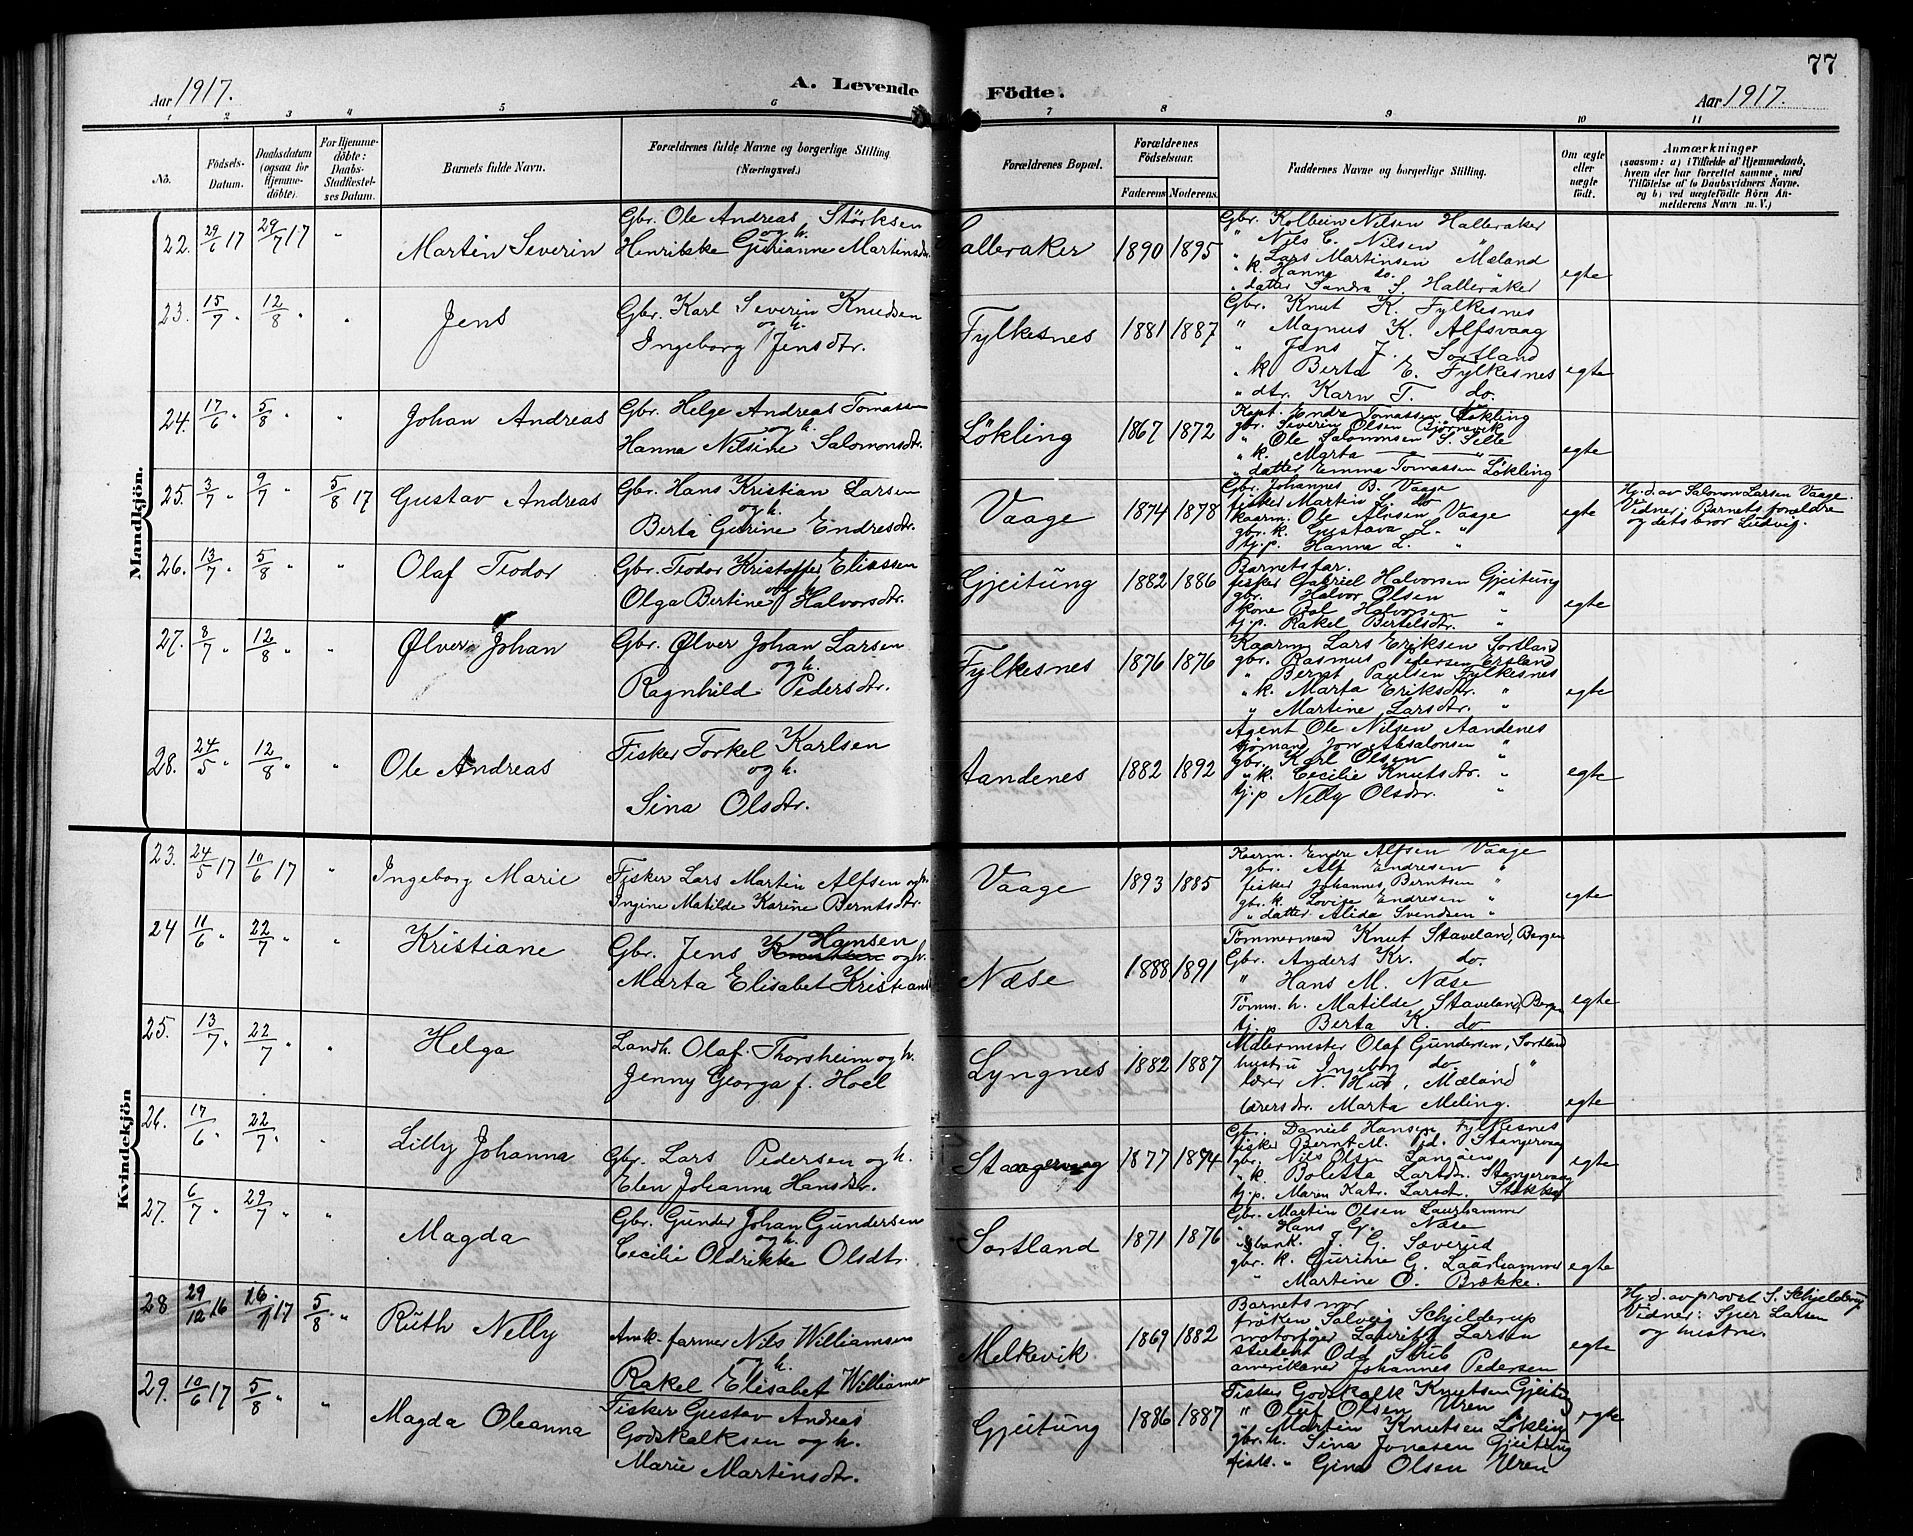 77
Aar 1917.
A. Levende Födte.
Aar 1917.
1 2 3 4 5 6 7 8 9 10 11
No.
Födsels-Datum.
Daabsdatum (ogsaa for Hjemme-döbte).
For Hjemme-döbte: Daabs-Stadfæstel-ses Datum.
Barnets fulde Navn.
Forældrenes fulde Navne og borgerlige Stilling (Næringsvei.)
Forældrenes Bopæl.
Forældrenes Födselsaar.
Faderens Moderens.
Faddernes Navne og borgerlige Stilling.
Om ægte eller uægte födt.
Anmærkninger
(saasom: a) i Tilfælde af Hjemmedaab,
hvem der har forrettet samme, med
Tilföielse af to Daabsvidners Navne.
og b) ved uægtefödte Börn An-
melderens Navn m. V.)
Mandkjön.
22. 29/6 17 29/7 17 " Martin Severin
Gbr. Ole Andreas Størksen
og h.
Henrikke Gurianne Martinsdtr.
Halleraker 1890 1895
Gbr. Kolbein Nilsen Halleraker
" Nils C. Nilsen "
" Lars Martinsen Mæland
" k. Hanna do.
" datter Sandra S. Halleraker
egte
23. 15/7 " 12/8 " " Jens
Gbr. Karl Severin Knudsen
og h.
Ingeborg Jensdtr.
Fylkesnes 1881 1887
Gbr. Knut K. Fylkesnes
" Magnus K. Alfsvaag
" Jens J. Sortland
" k Berta E. Fylkesnes
" dtr. Karn T. do.
egte
24. 17/6 " 5/8 " " Johan Andreas
Gbr. Helge Andreas Tomassen
og h.
Hanna Nilsine Salomonsdtr.
Løkling 1867 1872
Kapt. Endre Tomassen Løkling
gbr. Severin Olsen Bjørnevik
" Ole Salomonsen S. Selle
" k. Marta — " —
" datter Emma Tomassen Løkling
egte
25. 3/7 " 9/7 " 5/8 17 Gustav Andreas
Gbr. Hans Kristian Larsen
og h.
Berta Gurine Endresdtr.
Vaage 1874 1878
Gbr. Johannes B. Vaage
fisker Martin L. do
kaarm. Ole Alfsen Vaage
gbr. k. Gustava L. "
tj.p. Hanna L. "
egte
Hj. d. av Salomon Larsen Vaage.
Vidner: Barnets forældre
og dets bror Ludvig.
26. 13/7 " 5/8 " " Olaf Teodor
Gbr. Teodor Kristoffer Eliassen
og h.
Olga Bertine Halvorsdtr.
Gjeitung 1882 1886
Barnets far.
fisker Gabriel Halvorsen Gjeitung
gbr. Halvor Olsen "
kone Bol. Halvorsen "
tj.p. Rakel Bertelsdtr. "
egte
27. 8/7 " 12/8 " " Ølver Johan
Gbr. Ølver Johan Larsen
og h.
Ragnhild Pedersdtr.
Fylkesnes 1876 1876
Kaarm Lars Eriksen Sortland
gbr. Rasmus Pedersen Ersland
" Bernt Paulsen Fylkesnes
" k. Marta Eriksdtr. "
" Martine Larsdtr. "
egte
28. 24/5 " 12/8 " " Ole Andreas
Fisker Torkel Karlsen
og h.
Sina Olsdtr.
Aandenes 1882 1892
Agent Ole Nilsen Aandenes
sjømand Jon Absalonsen "
gbr. Karl Olsen "
" k. Cecilie Knutsdtr. "
tj.p Nelly Olsdtr. "
egte
Kvindekjön
23. 24/5 17 10/6 17 " Ingeborg Marie
Fisker Lars Martin Alfsen og h.
Ingine Matilde Karine Berntsdtr.
Vaage 1893 1885
Kaarm. Endre Alfsen Vaage
gbr. Alf Endresen "
fisker Johannes Berntsen "
gbr. k. Lovise Endresen "
" datter Alida Svendsen "
egte
24 11/6 " 22/7 " " Kristiane
Hansen
Gbr. Jens og h.
Marta Elisabet Kristians
Næse 1888 1891
Tømmermand Knut Staveland, Bergen
Gbr. Anders Kr. do.
" Hans M. Næse
Tømm. h. Matilde Staveland, Bergen
tj. p Berta K. do
egte
25. 13/7 " 22/7 " " Helga
Landh. Olaf Thorsheim og h.
Jenny Georga f. Hoel
Lyngnes 1882 1887
Malermester Olaf Gundersen, Sortland
hustru Ingeborg do. "
lærer N. Hus, Mæland
lærersdr. Marta Meling.
egte
26. 17/6 22/7 " " Lilly Johanna
Gbr. Lars Pedersen og h.
Elen Johanna Hansdtr.
Stangervaag 1877 1894
Gbr. Daniel Hansen Fylkesnes
fisker Bernt M. Pd. Stangervaag
gbr. Nils Olsen Langøen
" k. Boletta Larsdtr. Stangervaag
tj.p. Maren Katr. Larsdtr.
egte
27. 6/7 " 29/7 " " Magda
Gbr. Gunder Johan Gundersen
og h.
Cecilie Oldrikke Olsdtr.
Sortland 1871 1876
Gbr. Martin Olsen Laurhammer
" Hans G. Næse
J. G. Søverud
gbr. k. Gurine G. Laurhammer
" Martine O. Brekke.
egte
28 29/12 16 5/8 " Ruth Nelly
Amk. farmer Nils Williamsen
og h.
Rakel Elisabet Williamsen
Melkevik 1869 1882
Barnets mor
frøken Solveig Schjelderup
motorfører Lauritz Larsen
student Odd Strib
amerikaner Johannes Pedersen
egte
Hj. d. av provst S. Schjelderup
Vidner: Sjur Larsen
og hustru.
29. 10/6 17 5/8 " " Magda Oleanna
Fisker Gustav Andreas
Godskalksen og h.
Marie Martinsdtr.
Gjeitung 1886 1887
Fisker Godskalk Knutsen Gjeitung
" Oluf Olsen Uren
" Martin Knutsen Løkling
gbr. h. Sina Jonasen Gjeitung
fisk. " Gina Olsen Uren
egte